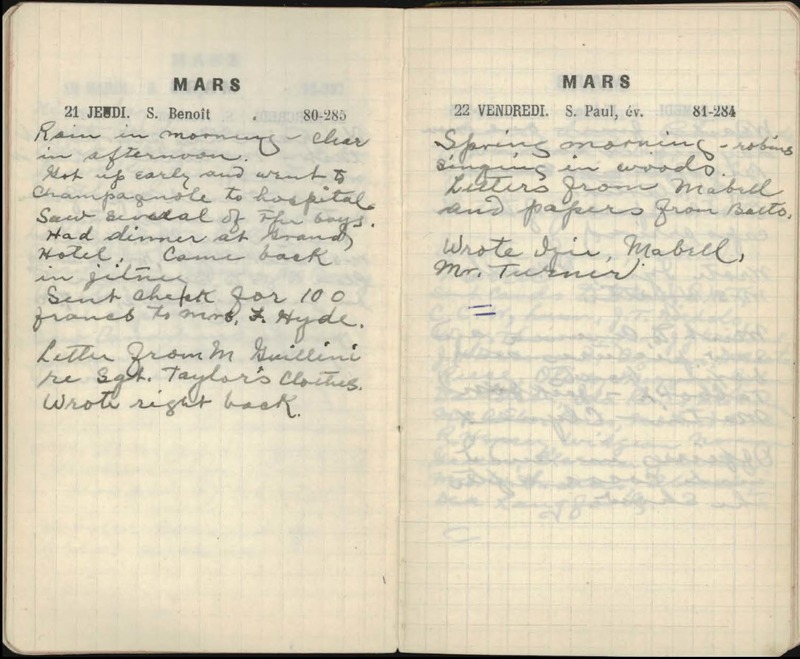 MARS
21 JEUDI. S. Benoît 80-285
Rain in morning - clear
in afternoon.
Got up early and went to
Champagnole to hospital.
Saw several of the boys.
Had dinner at Grand
Hotel. Came back
in jitney
Sent check for 100
francs to Mrs. F. Hyde.
Letter from M Guillini
re Sgt. Taylor's Clothes.
Wrote right back.
MARS
22 VENDREDI. S. Paul, év. 81-284
Spring morning - robins
singing in woods.
Letters from Mabell
and papers from Balto.
Wrote Mabell,
Mr. Turner